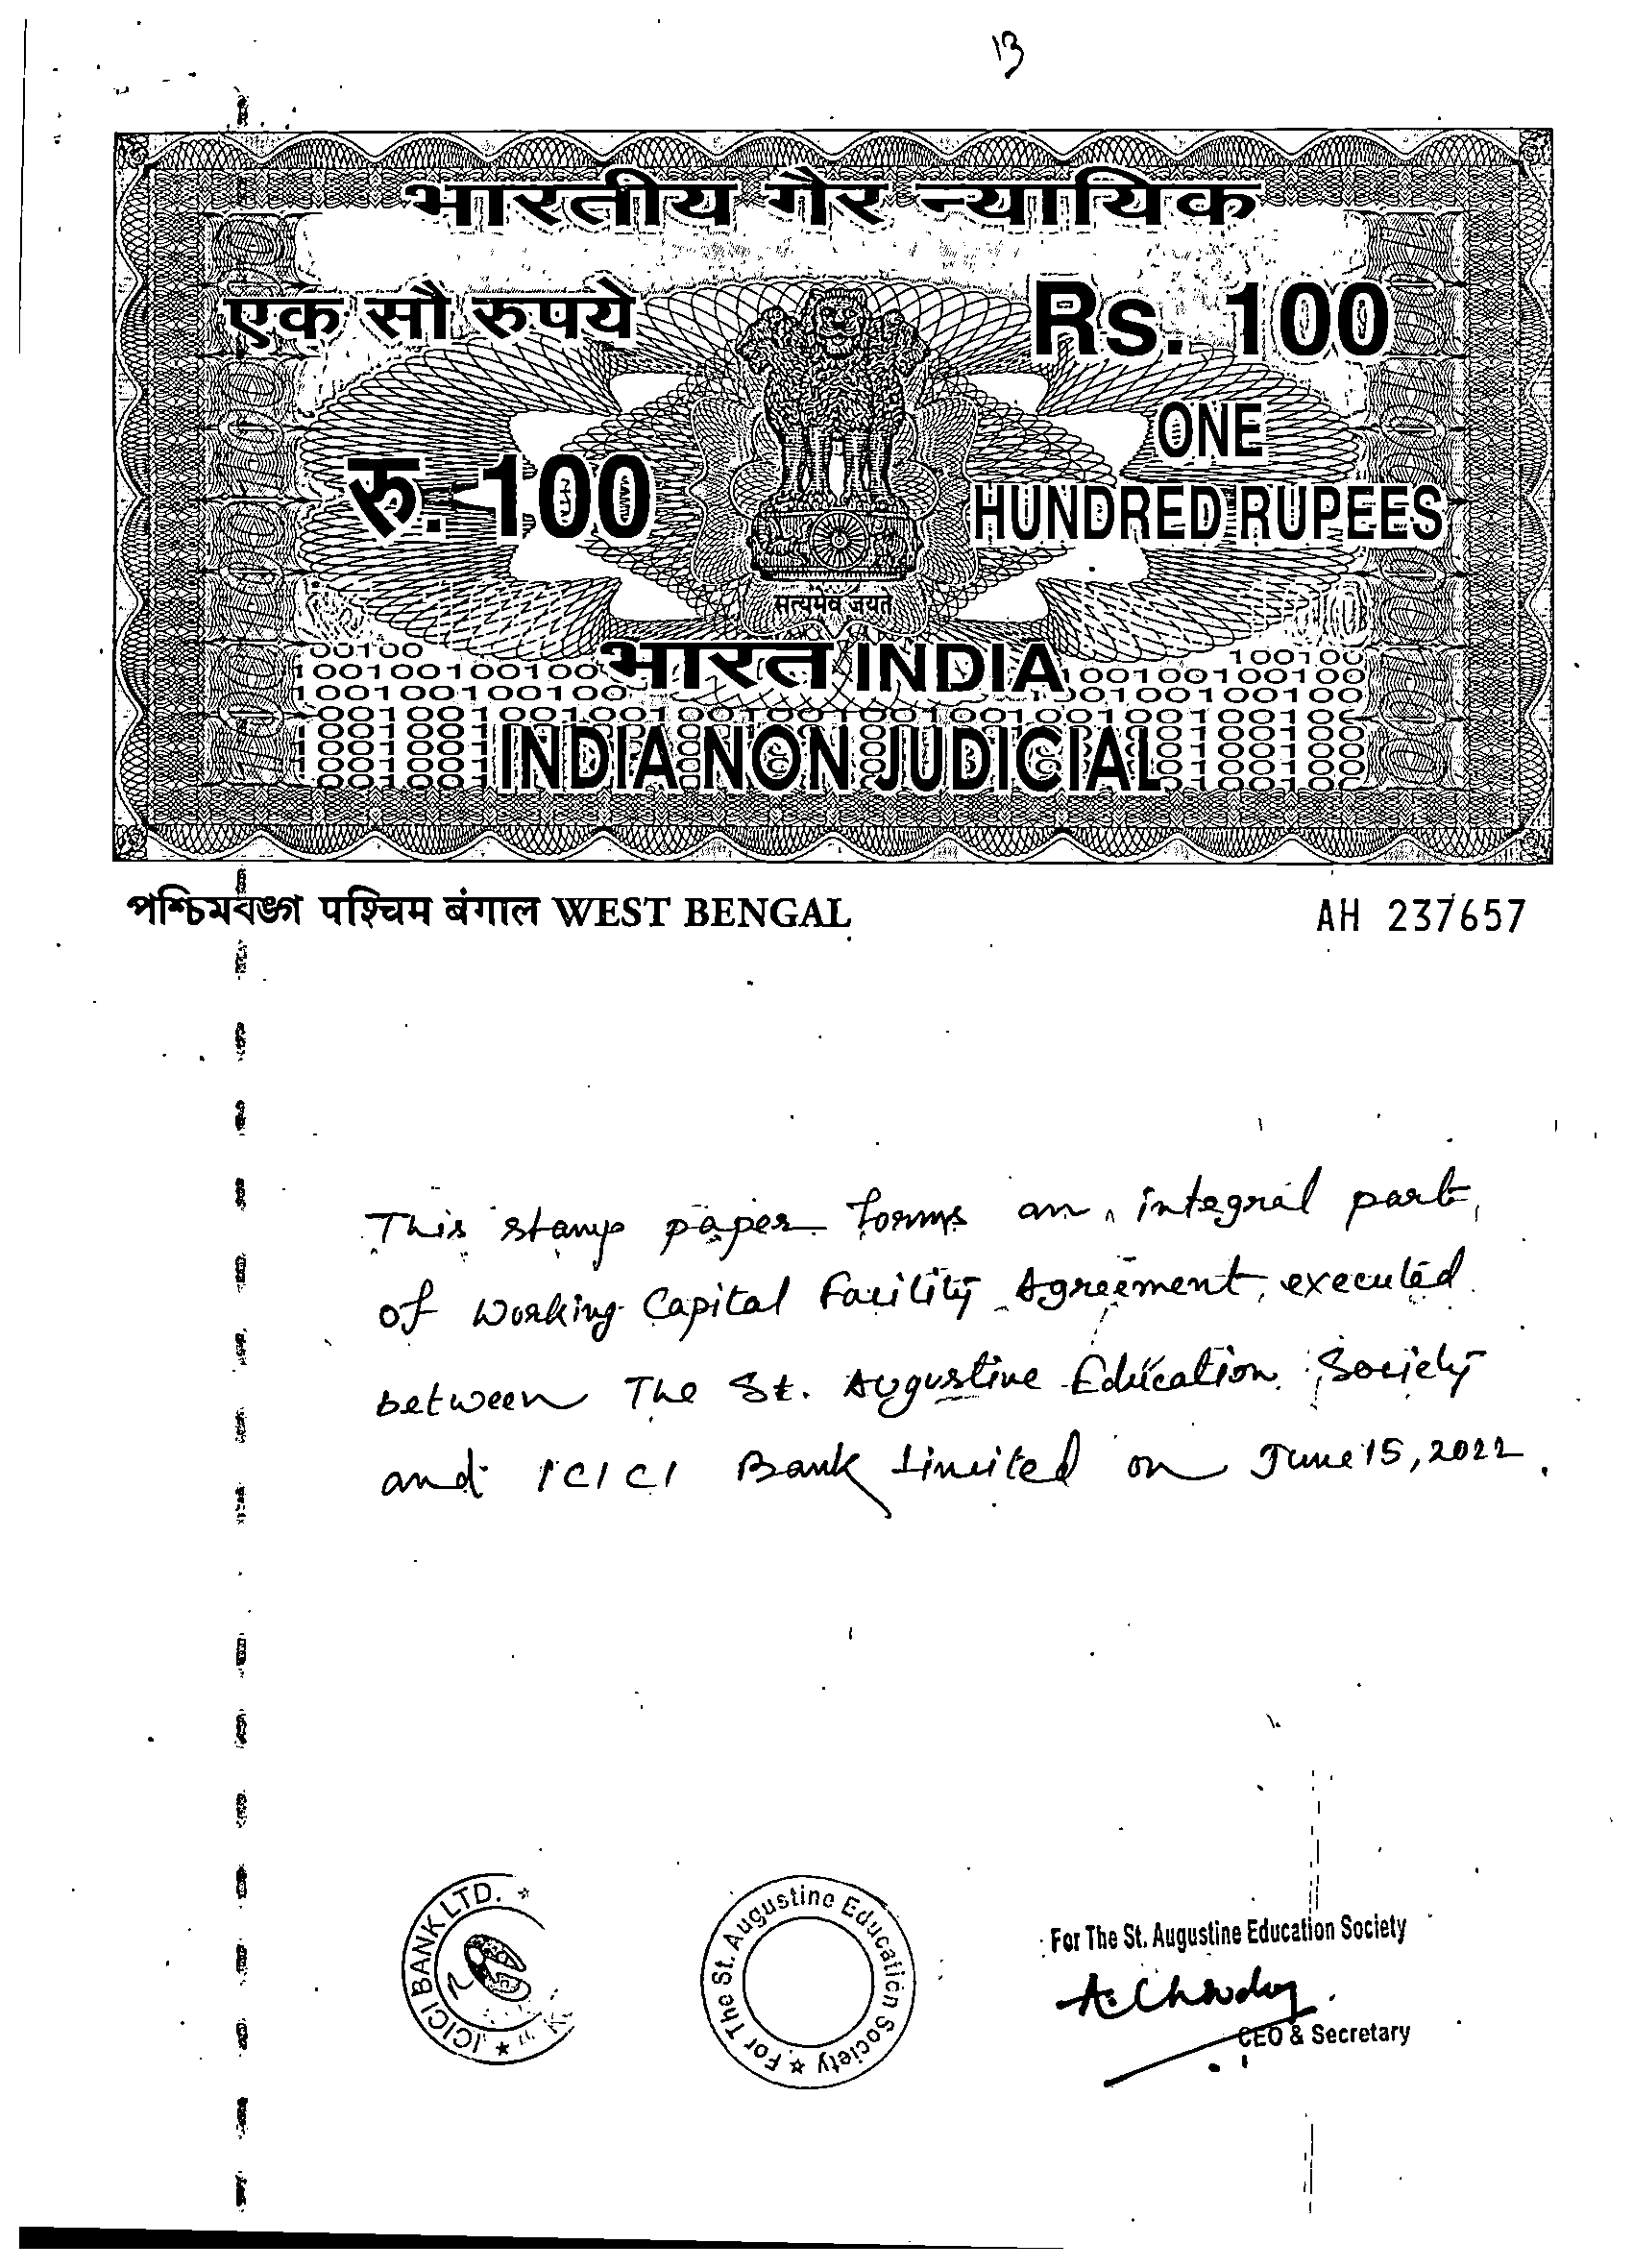 13
भारतीय गैर न्यायिक
एक सौ रुपये
Rs. 100
रु. 100
ONE
HUNDRED RUPEES
सत्यमेव जयते
भारत INDIA
INDIA NON JUDICIAL
পশ্চিমবঙ্গ पश्चिम बंगाल WEST BENGAL
AH 237657
This stamp paper forms an integral part
of Working Capital Facility Agreement, executed
between The St. Augustine Education Society
and ICICI Bank Limited on June 15, 2022.
ICICI BANK LTD. *
For The St. Augustine Education Society *
For The St. Augustine Education Society
A. Chowdhy
CEO & Secretary